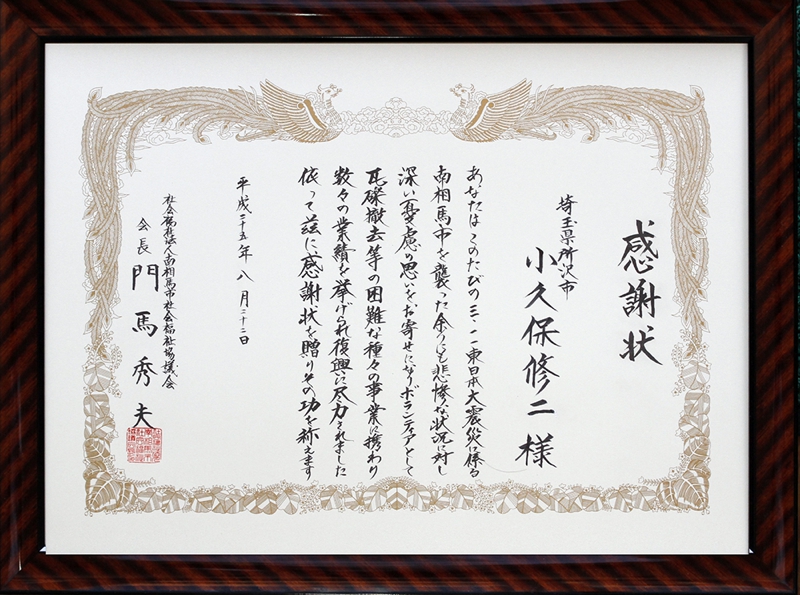 感謝状
埼玉県所沢市
小久保修二 様
あなたはこのたびの三・一一東日本大震災に係る
南相馬市を襲った余りにも悲惨な状況に対し
深い憂慮の思いをお寄せになりボランティアとして
瓦礫撤去等の困難な種々の事業に携わり
数々の業績を挙げられ復興に尽力されました
依って茲に感謝状を贈りその功を称えます
平成二十五年八月二十二日
社会福祉法人南相馬市社会福祉協議会
会長 門馬秀夫